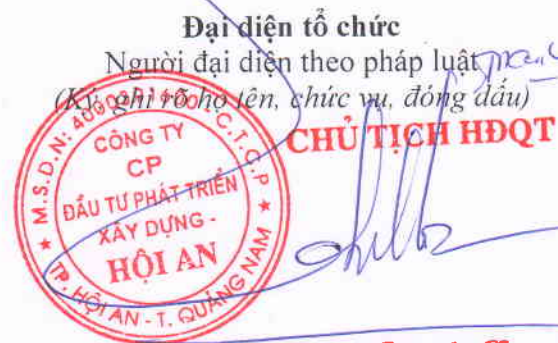 Đại diện tổ chức
Người đại diện theo pháp luật
(Ký, ghi rõ họ tên, chức vụ, đóng dấu)
CHỦ TỊCH HĐQT
CÔNG TY
CP
ĐẦU TƯ PHÁT TRIỂN
XÂY DỰNG -
HỘI AN
M.S.D.N:
C.T.C.P
TP. HỘI AN - T. QUẢNG NAM